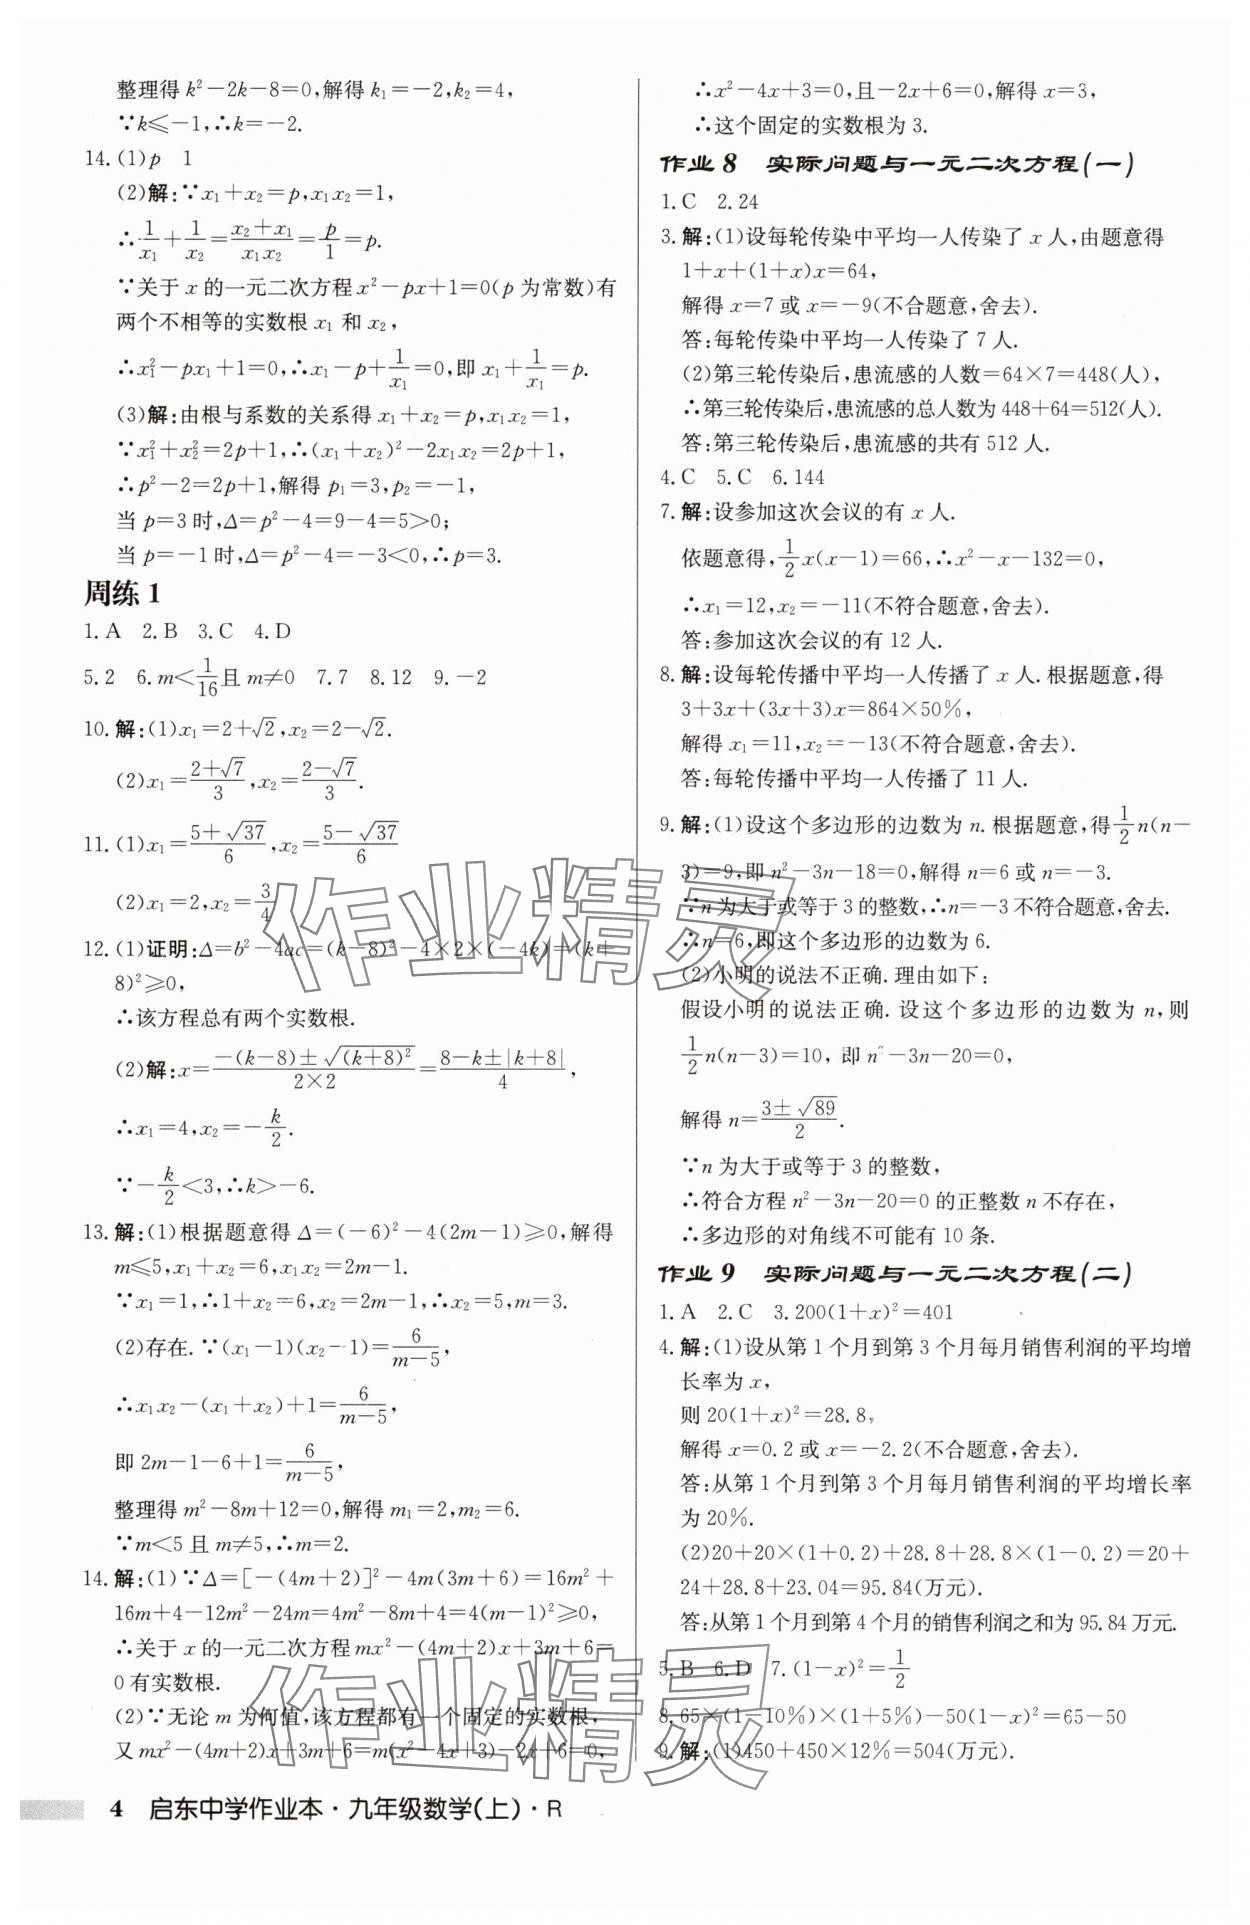 整理得 k²－2k－8＝0,解得 k₁＝－2,k₂＝4,
∵k≤－1,∴k＝－2.
14.(1)p 1
(2)解:∵x₁＋x₂＝p,x₁x₂＝1,
∴1/x₁＋1/x₂＝(x₂＋x₁)/(x₁x₂)＝p/1＝p.
∵关于 x 的一元二次方程 x²－px＋1＝0(p 为常数)有
两个不相等的实数根 x₁ 和 x₂,
∴x₁²－px₁＋1＝0,∴x₁－p＋1/x₁＝0,即 x₁＋1/x₁＝p.
(3)解:由根与系数的关系得 x₁＋x₂＝p,x₁x₂＝1,
∵x₁²＋x₂²＝2p＋1,∴(x₁＋x₂)²－2x₁x₂＝2p＋1,
∴p²－2＝2p＋1,解得 p₁＝3,p₂＝－1,
当 p＝3 时,Δ＝p²－4＝9－4＝5>0;
当 p＝－1 时,Δ＝p²－4＝－3<0,∴p＝3.
周练 1
1.A 2.B 3.C 4.D
5.2 6.m<1/16且 m≠0 7.7 8.12 9.－2
10.解:(1)x₁＝2＋√2,x₂＝2－√2.
(2)x₁＝(2＋√7)/3,x₂＝(2－√7)/3.
11.(1)x₁＝(5＋√37)/6,x₂＝(5－√37)/6
(2)x₁＝2,x₂＝3/4
12.(1)证明:Δ＝b²－4ac＝(k－8)²－4×2×(－4k)＝(k＋
8)²≥0,
∴该方程总有两个实数根.
(2)解:x＝(－(k－8)±√(k＋8)²)/(2×2)＝(8－k±|k＋8|)/4,
∴x₁＝4,x₂＝－k/2.
∵－k/2<3,∴k>－6.
13.解:(1)根据题意得 Δ＝(－6)²－4(2m－1)≥0,解得
m≤5,x₁＋x₂＝6,x₁x₂＝2m－1.
∵x₁＝1,∴1＋x₂＝6,x₂＝2m－1,∴x₂＝5,m＝3.
(2)存在.∵(x₁－1)(x₂－1)＝6/(m－5),
∴x₁x₂－(x₁＋x₂)＋1＝6/(m－5),
即 2m－1－6＋1＝6/(m－5),
整理得 m²－8m＋12＝0,解得 m₁＝2,m₂＝6.
∵m<5 且 m≠5,∴m＝2.
14.解:(1)∵Δ＝[－(4m＋2)]²－4m(3m＋6)＝16m²＋
16m＋4－12m²－24m＝4m²－8m＋4＝4(m－1)²≥0,
∴关于 x 的一元二次方程 mx²－(4m＋2)x＋3m＋6＝
0 有实数根.
(2)∵无论 m 为何值,该方程都有一个固定的实数根,
又 mx²－(4m＋2)x＋3m＋6＝m(x²－4x＋3)－2x＋6＝0,
∴x²－4x＋3＝0,且－2x＋6＝0,解得 x＝3,
∴这个固定的实数根为 3.
作业 8 实际问题与一元二次方程(一)
1.C 2.24
3.解:(1)设每轮传染中平均一人传染了 x 人,由题意得
1＋x＋(1＋x)x＝64,
解得 x＝7 或 x＝－9(不合题意,舍去).
答:每轮传染中平均一人传染了 7 人.
(2)第三轮传染后,患流感的人数＝64×7＝448(人),
∴第三轮传染后,患流感的总人数为 448＋64＝512(人).
答:第三轮传染后,患流感的共有 512 人.
4.C 5.C 6.144
7.解:设参加这次会议的有 x 人.
依题意得,1/2x(x－1)＝66,∴x²－x－132＝0,
∴x₁＝12,x₂＝－11(不符合题意,舍去).
答:参加这次会议的有 12 人.
8.解:设每轮传播中平均一人传播了 x 人.根据题意,得
3＋3x＋(3x＋3)x＝864×50%,
解得 x₁＝11,x₂＝－13(不符合题意,舍去).
答:每轮传播中平均一人传播了 11 人.
9.解:(1)设这个多边形的边数为 n.根据题意,得1/2n(n－
3)＝9,即 n²－3n－18＝0,解得 n＝6 或 n＝－3.
∵n 为大于或等于 3 的整数,∴n＝－3 不符合题意,舍去.
∴n＝6,即这个多边形的边数为 6.
(2)小明的说法不正确.理由如下:
假设小明的说法正确.设这个多边形的边数为 n,则
1/2n(n－3)＝10,即 n²－3n－20＝0,
解得 n＝(3±√89)/2.
∵n 为大于或等于 3 的整数,
∴符合方程 n²－3n－20＝0 的正整数 n 不存在,
∴多边形的对角线不可能有 10 条.
作业 9 实际问题与一元二次方程(二)
1.A 2.C 3.200(1＋x)²＝401
4.解:(1)设从第 1 个月到第 3 个月每月销售利润的平均增
长率为 x,
则 20(1＋x)²＝28.8,
解得 x＝0.2 或 x＝－2.2(不合题意,舍去).
答:从第 1 个月到第 3 个月每月销售利润的平均增长率
为 20%.
(2)20＋20×(1＋0.2)＋28.8＋28.8×(1－0.2)＝20＋
24＋28.8＋23.04＝95.84(万元).
答:从第 1 个月到第 4 个月的销售利润之和为 95.84 万元.
5.B 6.D 7.(1－x)²＝1/2
8.65×(1－10%)×(1＋5%)－50(1－x)²＝65－50
9.解:(1)450＋450×12%＝504(万元).
4 启东中学作业本·九年级数学(上)·R
作业精灵
作业精灵